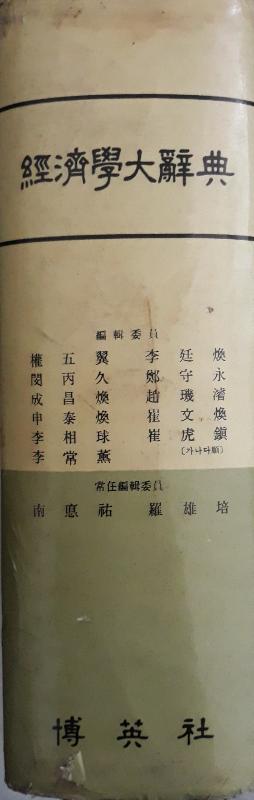 經濟學大辭典
編輯委員
權五翼 李廷煥
閔丙久 鄭守永
成昌煥 趙璣濬
申泰煥 崔文煥
李相球 崔虎鎭
李常薰 (가나다順)
常任編輯委員
南悳祐 羅雄培
博英社